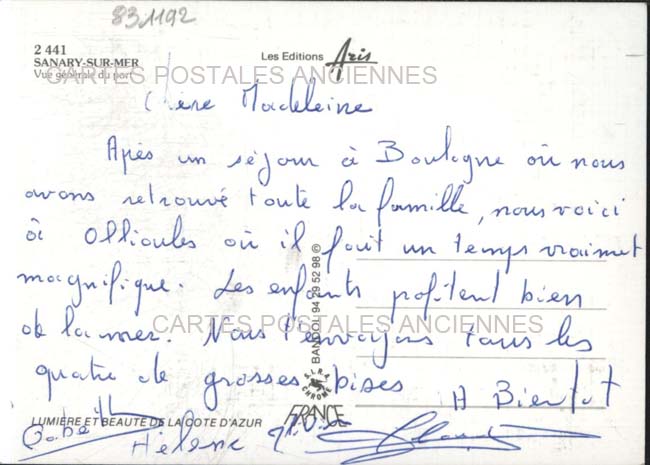 83.1192
2 441
SANARY-SUR-MER
Vue générale du port
Les Editions Aris
CARTES POSTALES ANCIENNES
Chère Madeleine
Après un séjour à Boulogne où nous
avons retrouvé toute la famille, nous voici
à Ollioules où il fait un temps vraiment
magnifique. Les enfants profitent bien
de la mer. Nous t'envoyons tous les
CARTES POSTALES ANCIENNES
quatre de grosses bises
A Bientot
BANDOL 94 29 52 98 ©
S.I.R.A.
CHROME
FRANCE
LUMIERE ET BEAUTE DE LA COTE D'AZUR
Hélène